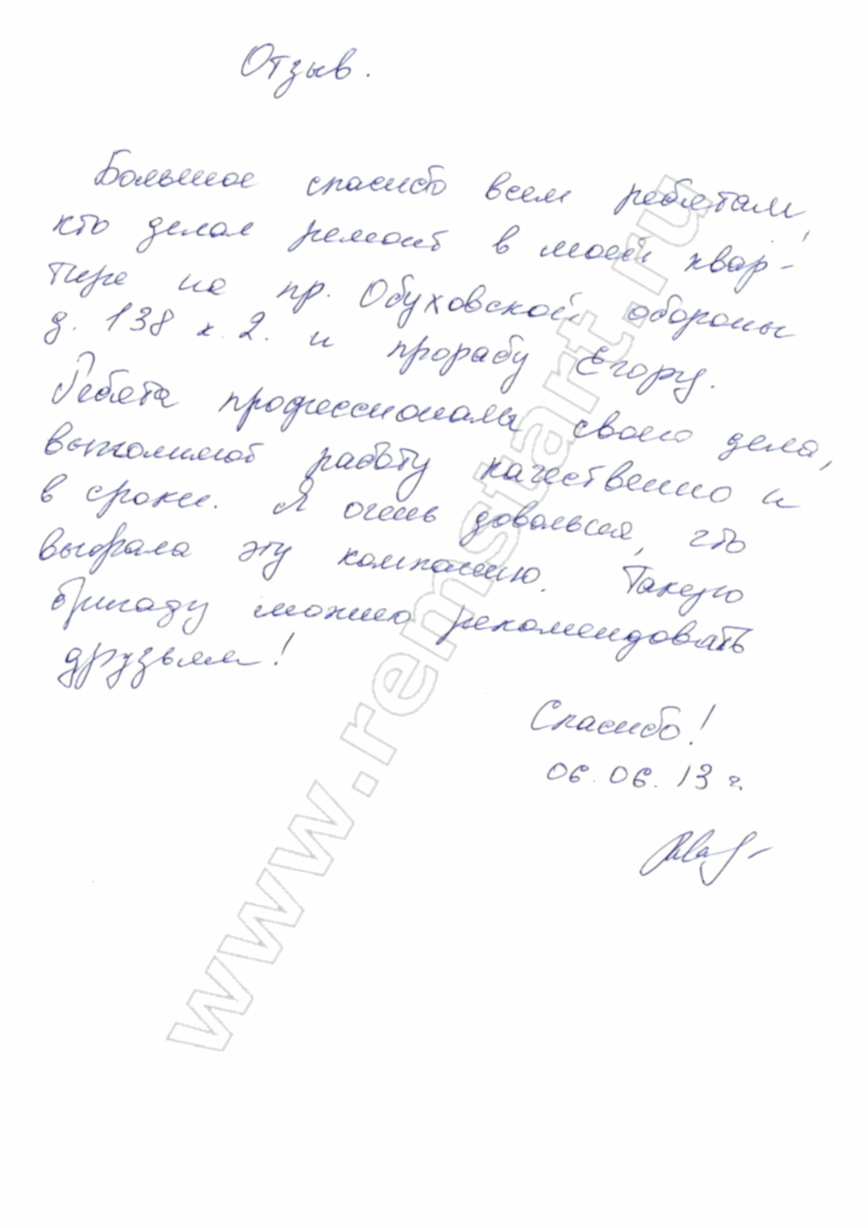 Отзыв.
Большое спасибо всем ребятам,
кто делал ремонт в моей квар-
тире на пр. Обуховской обороны
д. 138 к. 2. и прорабу Егору.
Ребята профессионалы своего дела,
выполняют работу качественно и
в сроки. Я очень довольна, что
выбрала эту компанию. Такую
бригаду можно рекомендовать
друзьям!
Спасибо!
06.06.13 г.
www.remstart.ru